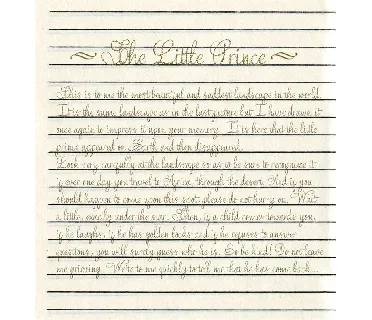 ~ The Little Prince ~
This is to me the most beautiful and saddest landscape in the world.
It is the same landscape as in the last picture but I have drawn it
once again to impress it upon your memory. It is here that the little
prince appeared on Earth and then disappeared.
Look very carefully at the landscape so as to be sure to recognise it
if ever one day you travel to Africa, through the desert. And if you
should happen to come upon this spot, please do not hurry on. Wait
a little, exactly under the star. Then, if a child comes towards you,
if he laughs, if he has golden locks and if he refuses to answer
questions, you will surely guess who he is. So be kind! Do not leave
me grieving. Write to me quickly to tell me that he has come back...